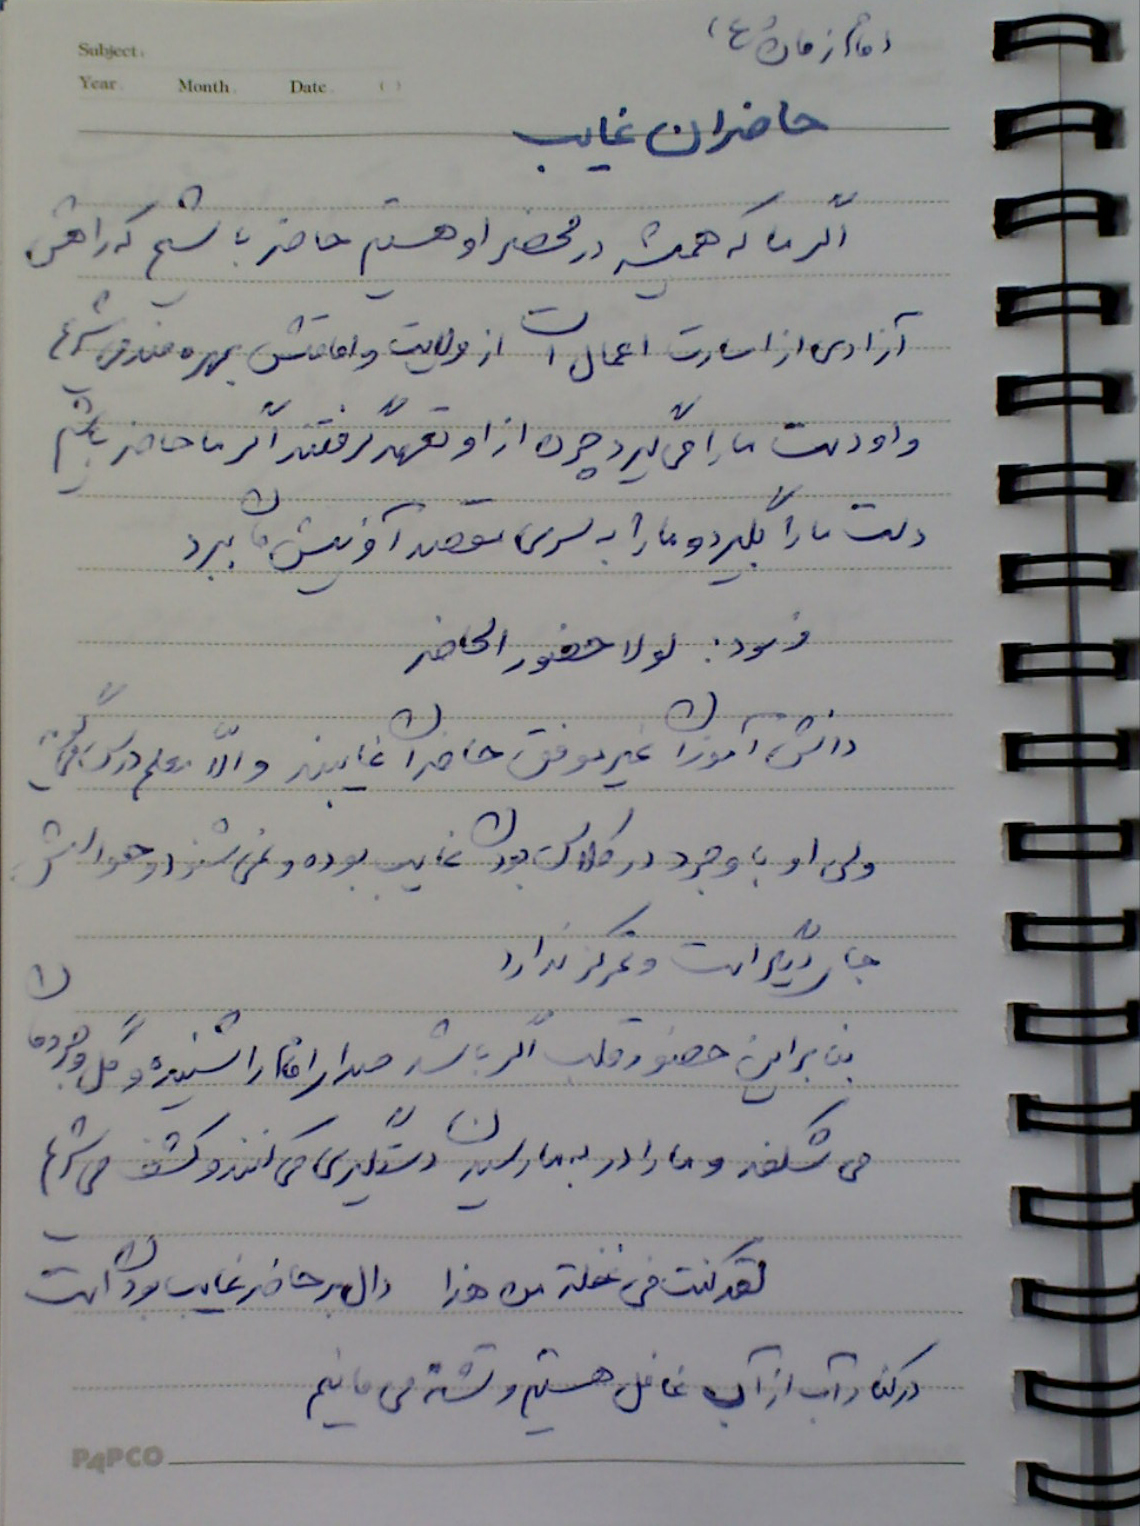 امام زمان (ع)
Subject:
Year. Month. Date. ( )
حاضران غایب
اگر ما که همیشه در محضر او هستیم حاضر باشیم که راهش
آزادی از اسارت اعمال است از ولایت و امامتش بهره مند می شویم
و او دست ما را می گیرد چون از او تعهد گرفتند اگر ما حاضر باشیم
دست ما را بگیرد و ما را به سوی مقصد آفرینش مان ببرد
فرمود: لولا حضور الحاضر
دانش آموزان غیر موفق حاضران غایبند و الّا معلم درس می گوید
ولی او با وجود در کلاس بودن غایب بوده و نمی شنود و حواسش
جای دیگر است و تمرکز ندارد
بنابراین حضور قلب اگر باشد صدای امام را شنیده و گل وجودمان
می شکفد و ما را در به ما رسیدن دستگیری می کنند و کشف می شویم
لقد کنت فی غفلة من هذا دال بر حاضر غایب بودن است
در کنار آب از آب غافل هستیم و تشنه می مانیم
PAPCO